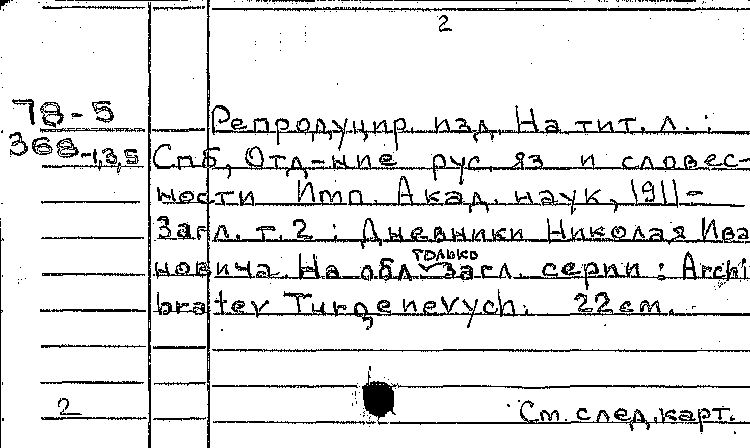 2
78-5
368-1,3,5
Репродуцир. изд. На тит. л. :
Спб, Отд-ние рус. яз и словес-
ности Имп. Акад. наук, 1911-
Загл. т. 2 : Дневники Николая Ива
новича. На обл. только загл. серии : Archi
bratev Turgenevych. 22 см.
2
См. след. карт.